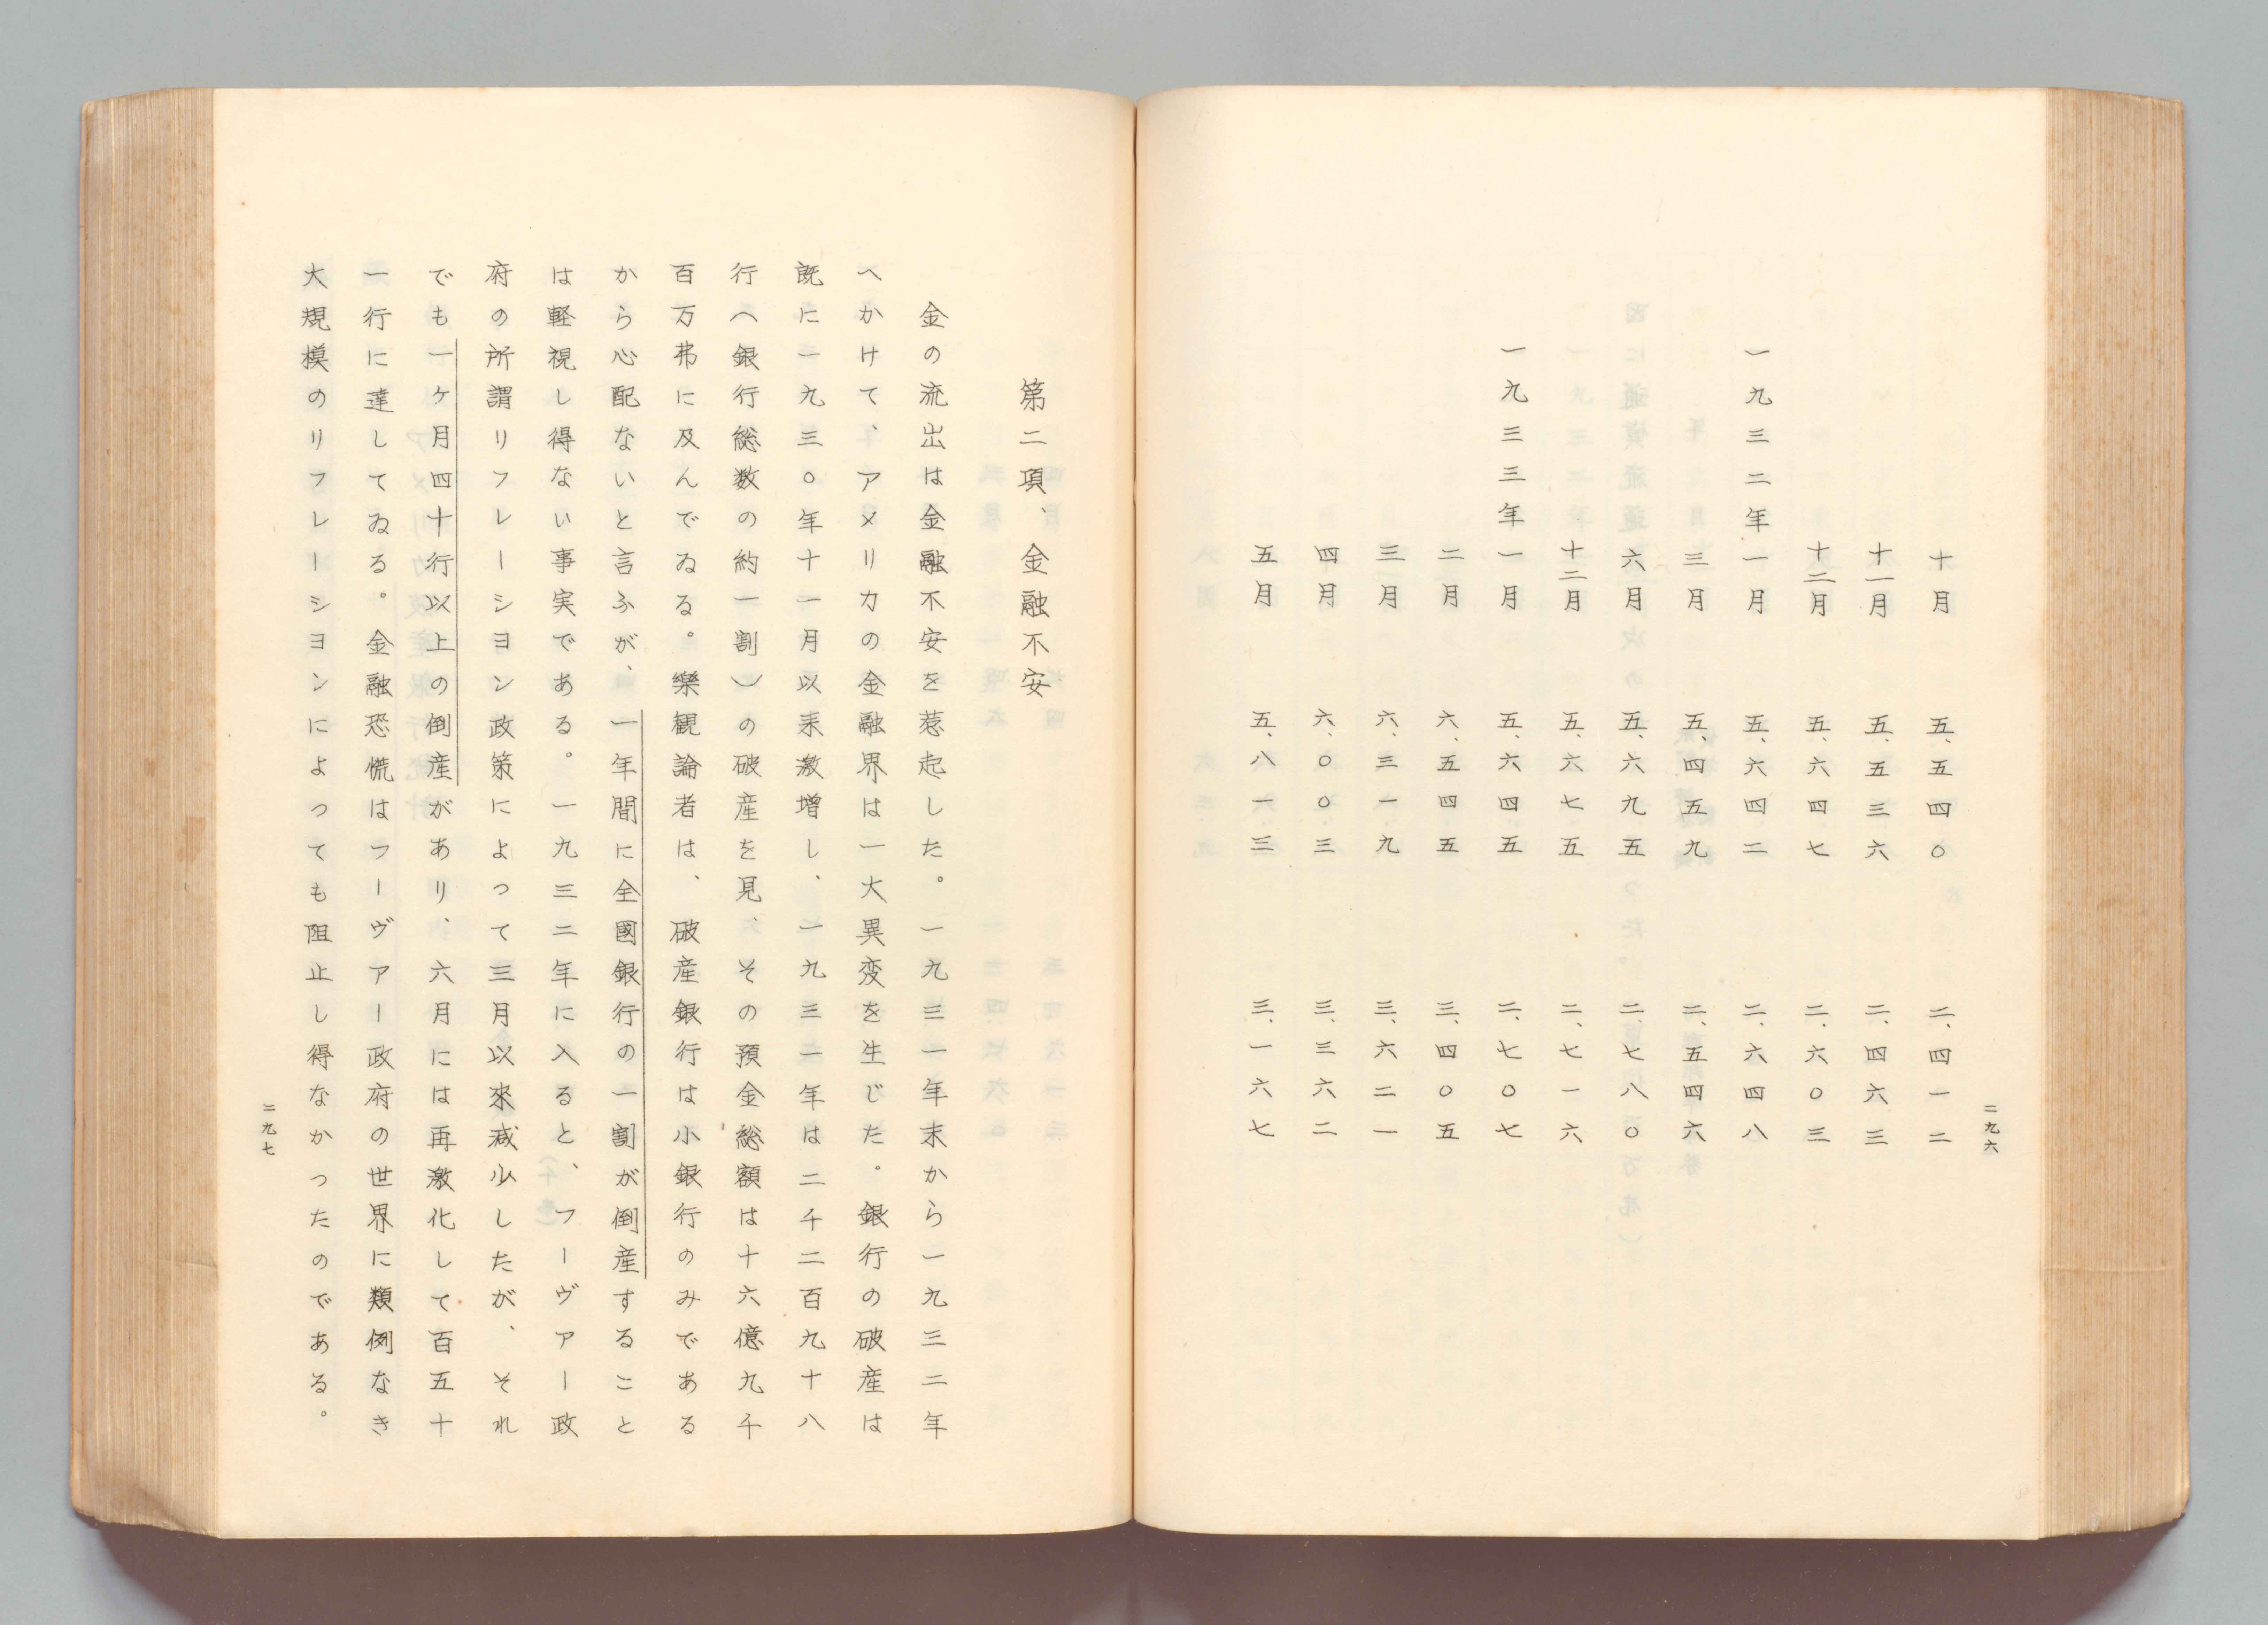 十月 五、五四〇 二、四一二
十一月 五、五三六 二、四六三
十二月 五、六四七 二、六〇三
一九三二年一月 五、六四二 二、六四八
三月 五、四五九 二、五四六
六月 五、六九五 二、七八〇
十二月 五、六七五 二、七一六
一九三三年一月 五、六四五 二、七〇七
二月 六、五四五 三、四〇五
三月 六、三一九 三、六二一
四月 六、〇〇三 三、三六二
五月 五、八一三 三、一六七
二九六
第二項、金融不安
金の流出は金融不安を惹起した。一九三一年末から一九三二年
へかけて、アメリカの金融界は一大異変を生じた。銀行の破産は
既に一九三〇年十一月以来激増し、一九三一年は二千二百九十八
行(銀行総数の約一割)の破産を見、その預金総額は十六億九千
百万弗に及んでゐる。樂観論者は、破産銀行は小銀行のみである
から心配ないと言ふが、一年間に全國銀行の一割が倒産すること
は軽視し得ない事実である。一九三二年に入ると、フーヴァー政
府の所謂リフレーシヨン政策によって三月以來减少したが、それ
でも一ヶ月四十行以上の倒産があり、六月には再激化して百五十
一行に達してゐる。金融恐慌はフーヴァー政府の世界に類例なき
大規模のリフレーシヨンによっても阻止し得なかったのである。
二九七